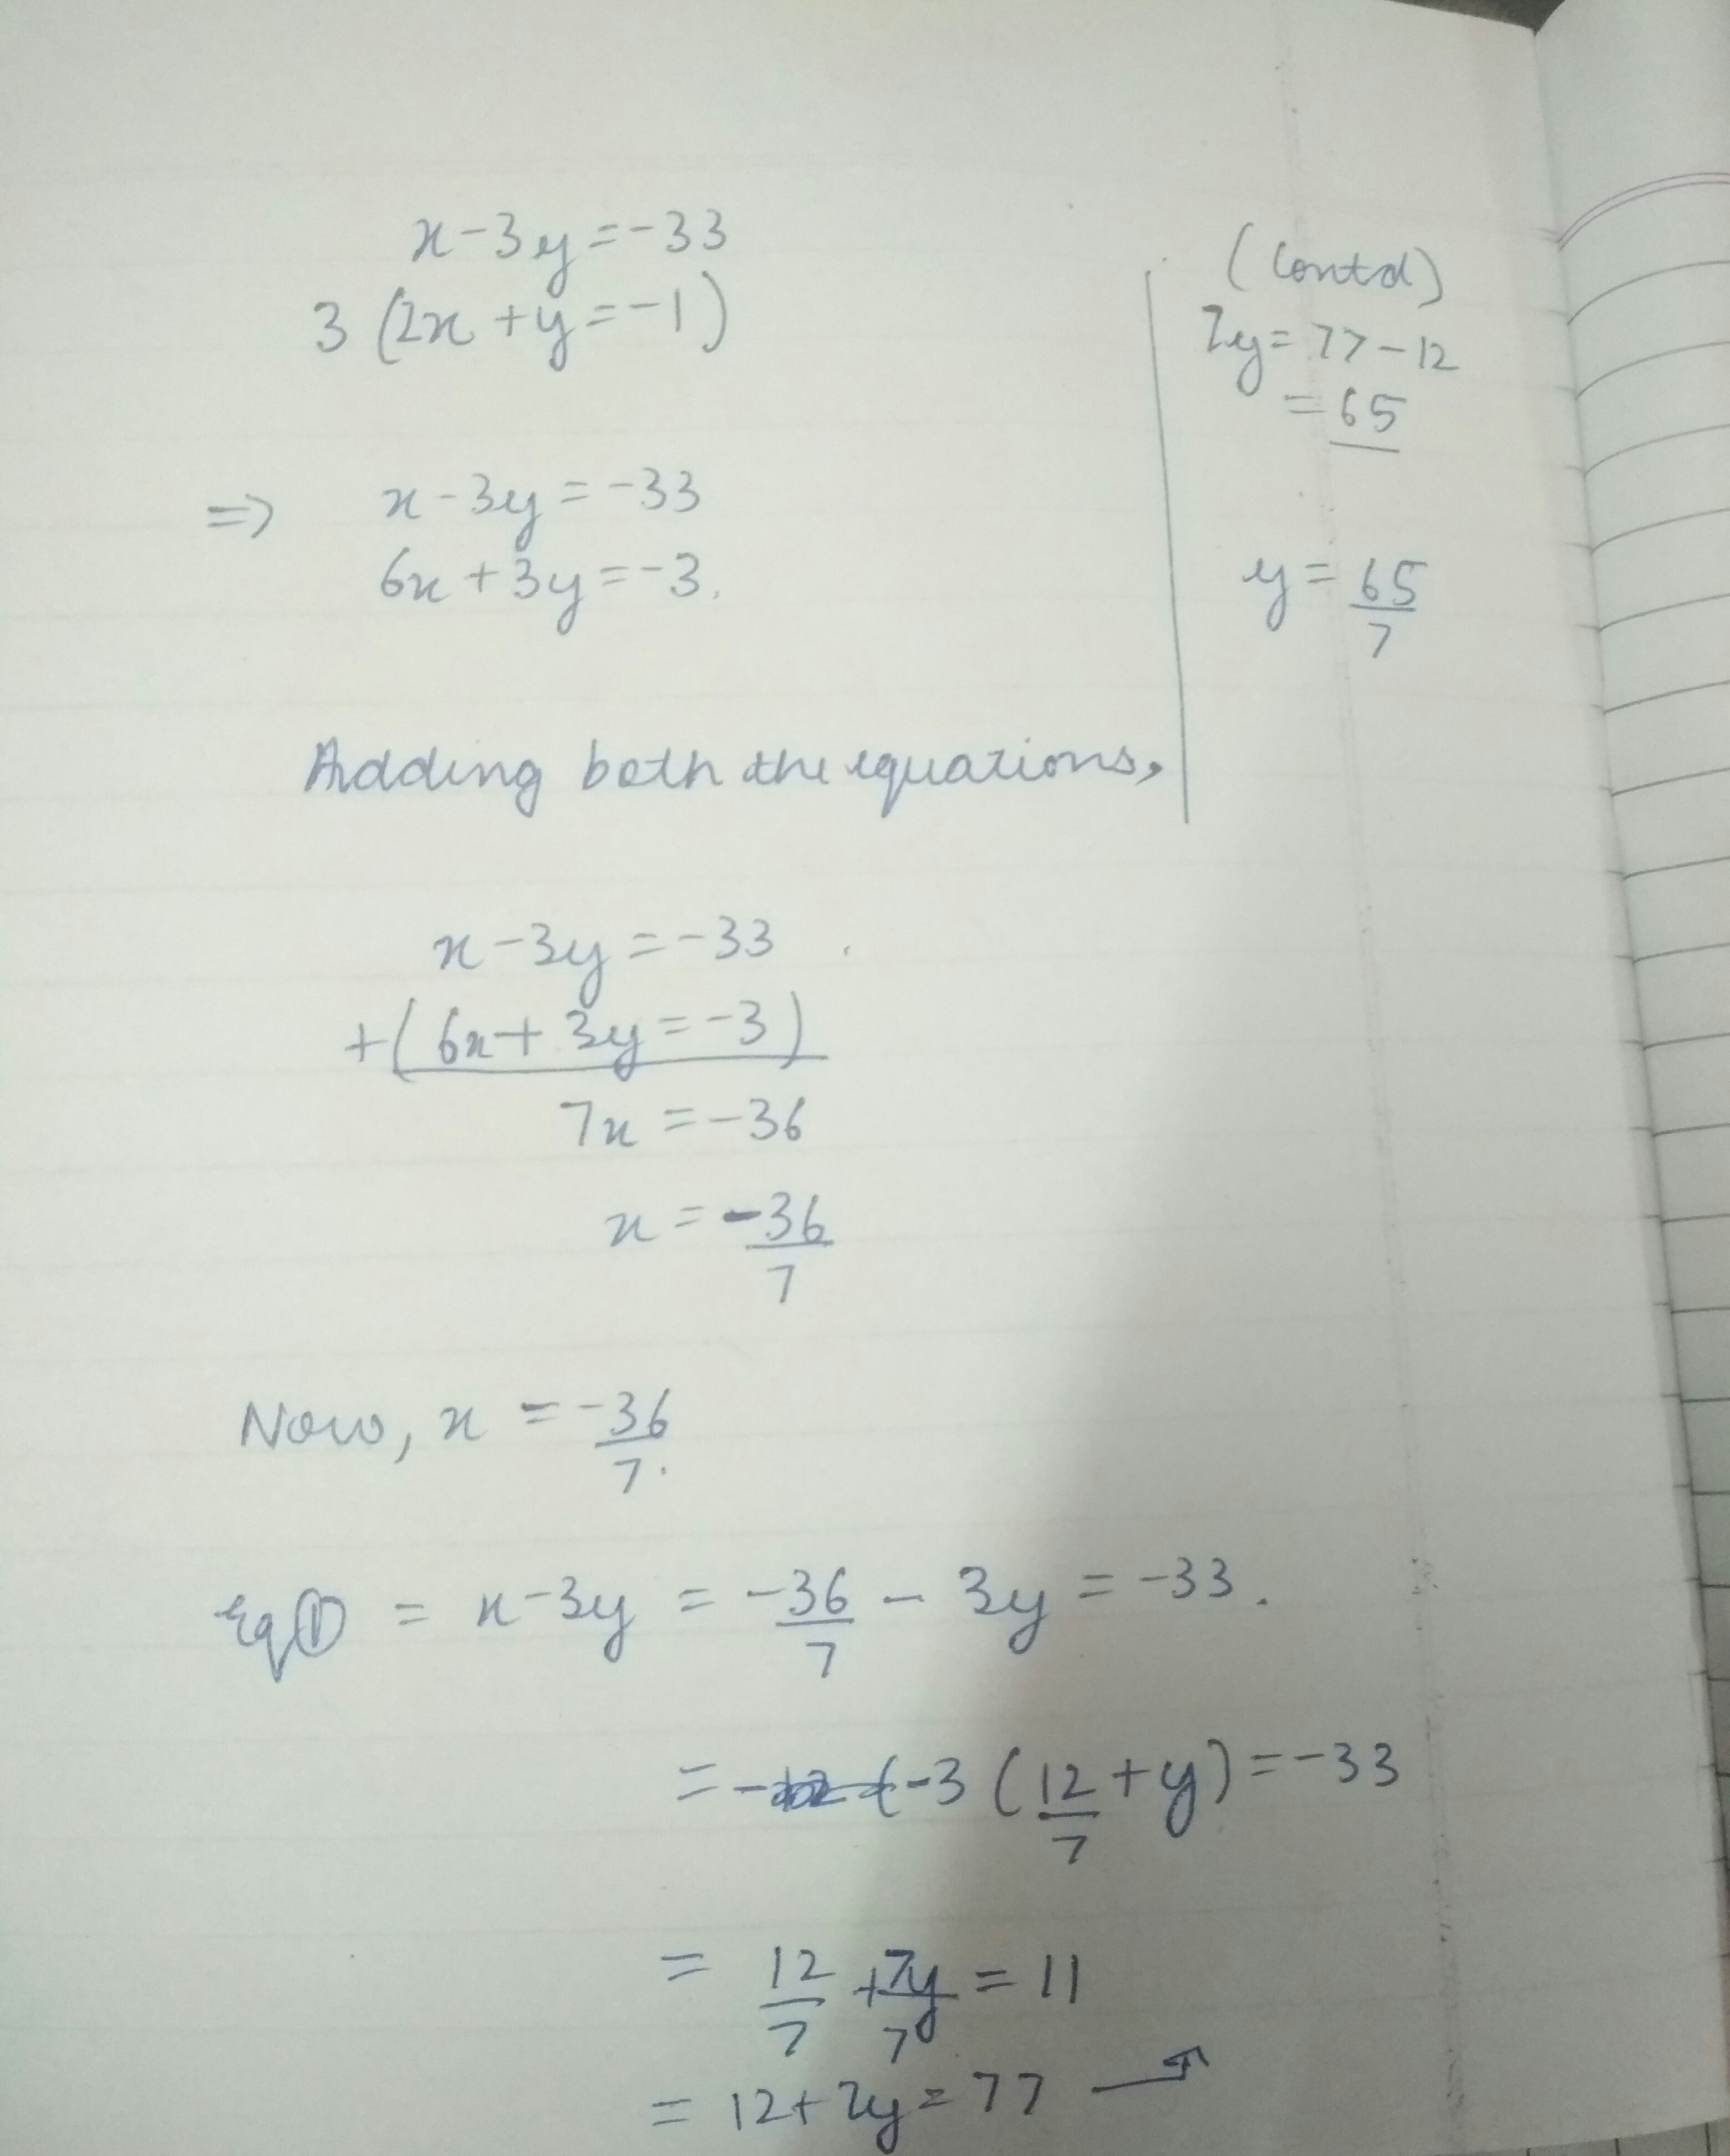 x - 3y = -33
3 (2x + y = -1)
=> x - 3y = -33
6x + 3y = -3.
Adding both the equations,
x - 3y = -33
+( 6x + 3y = -3 )
7x = -36
x = -36/7
Now, x = -36/7.
Eq① = x - 3y = -36/7 - 3y = -33.
= -3 (12/7 + y) = -33
= 12/7 + 7y/7 = 11
= 12 + 7y = 77
(Contd)
7y = 77 - 12
= 65
y = 65/7